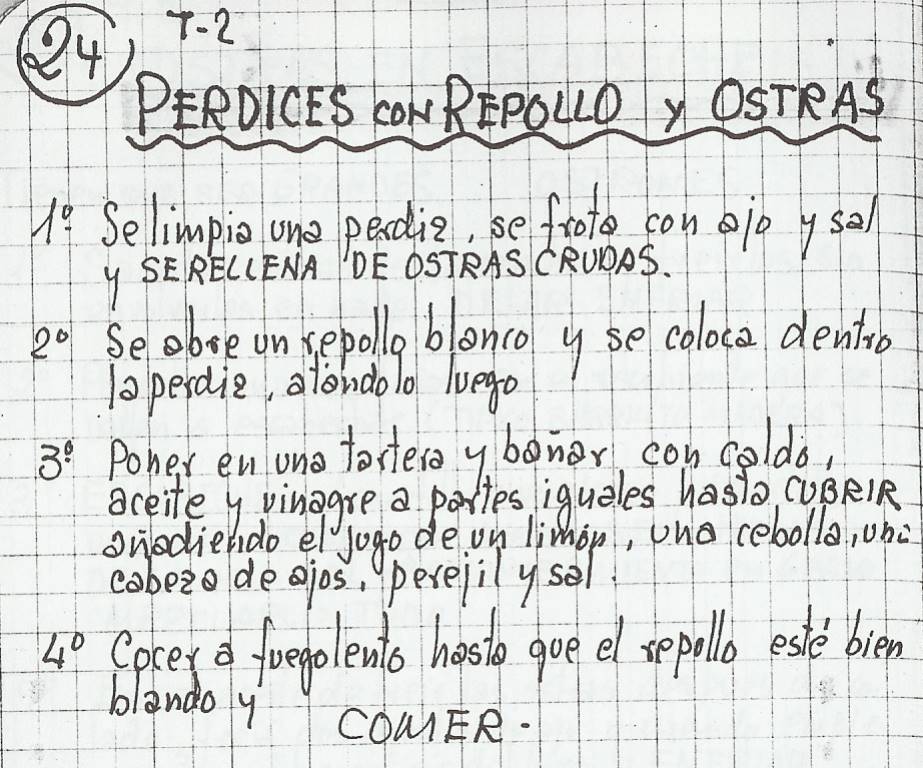 24
T-2
PERDICES CON REPOLLO y OSTRAS
1º Se limpia una perdiz, se frota con ajo y sal
y SE RELLENA DE OSTRAS CRUDAS.
2º Se abre un repollo blanco y se coloca dentro
la perdiz, atándolo luego
3º Poner en una tartera y bañar con caldo,
aceite y vinagre a partes iguales hasta CUBRIR
añadiendo el jugo de un limón, una cebolla, una
cabeza de ajos, perejil y sal.
4º Cocer a fuego lento hasta que el repollo esté bien
blando y
COMER.